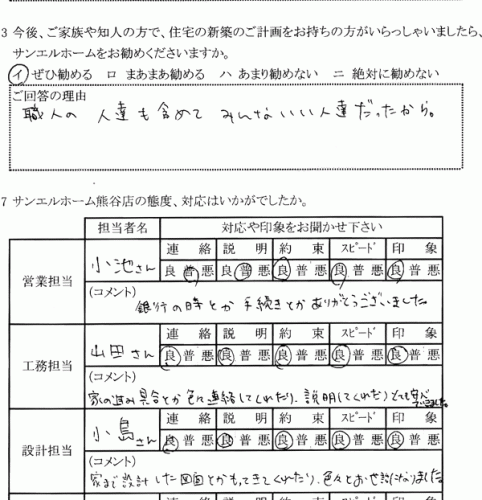 3 今後、ご家族や知人の方で、住宅の新築のご計画をお持ちの方がいらっしゃいましたら、
サンエルホームをお勧めくださいますか。
イ ぜひ勧める ロ まあまあ勧める ハ あまり勧めない ニ 絶対に勧めない
ご回答の理由
職人の 人達も含めて みんないい人達だったから。
7 サンエルホーム熊谷店の態度、対応はいかがでしたか。
担当者名 対応や印象をお聞かせ下さい
営業担当 小池さん 連絡 説明 約束 スピード 印象
良 普 悪 良 普 悪 良 普 悪 良 普 悪 良 普 悪
(コメント)
銀行の時とか 手続きとかありがとうございました
工務担当 山田さん 連絡 説明 約束 スピード 印象
良 普 悪 良 普 悪 良 普 悪 良 普 悪 良 普 悪
(コメント)
家の進み具合とか色々連絡してくれたり、説明してくれたり
設計担当 小島さん 連絡 説明 約束 スピード 印象
良 普 悪 良 普 悪 良 普 悪 良 普 悪 良 普 悪
(コメント)
家まで設計した図面とかもってきてくれたり、色々とお世話になりました